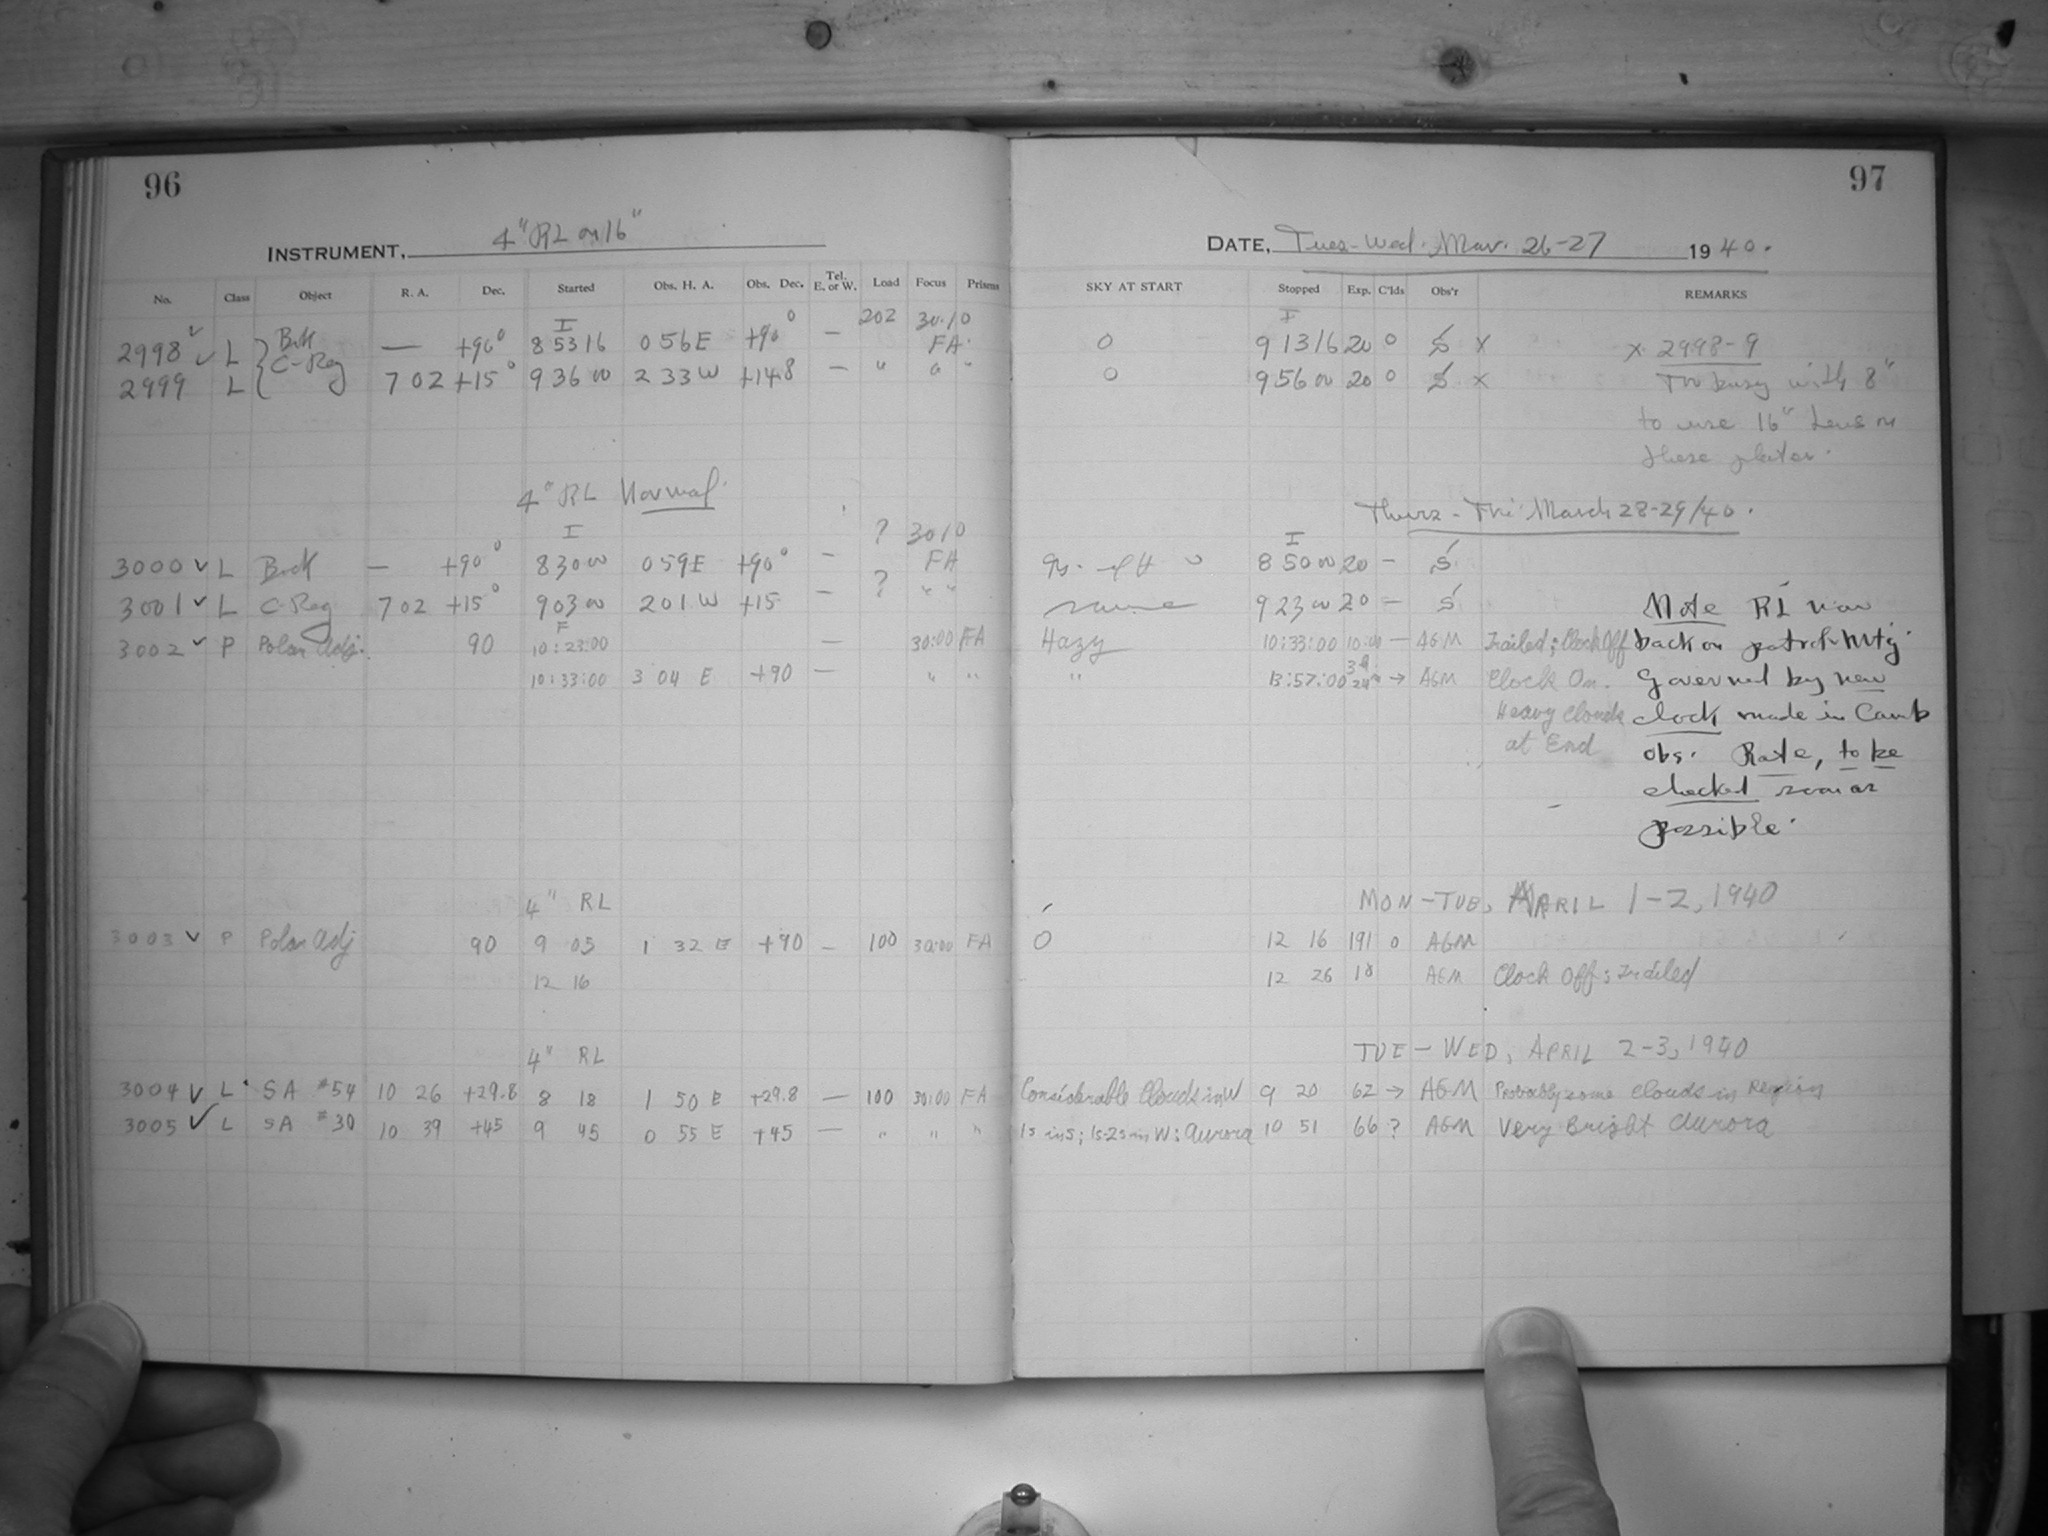 96
INSTRUMENT, 4" RL on 16"
No. Class Object R. A. Dec. Started Obs. H. A. Obs. Dec. Tel. E. or W. Load Focus Prisms
I 202 30.10
2998 L — +90° 8 53 16 0 56 E +90° — FA
C-Reg
2999 L 7 02 +15° 9 36 00 2 33 W +14.8 — " " "
4" RL Normal
I ? 3010
3000 L — +90° 8 30 00 0 59 E +90° — FA
3001 L C-Reg 7 02 +15° 9 03 00 2 01 W +15 — ? " "
F
3002 P Polar Adj. 90 10:23:00 — 30:00 FA
10:33:00 3 04 E +90 — " "
4" RL
3003 P Polar Adj 90 9 05 1 32 E +90 — 100 30:00 FA
12 16
4" RL
3004 L SA #54 10 26 +29.8 8 18 1 50 E +29.8 — 100 30:00 FA
3005 L SA #30 10 39 +45 9 45 0 55 E +45 — " " "
97
DATE, Tues-Wed. Mar. 26-27 1940.
SKY AT START Stopped Exp. C'lds Obs'r REMARKS
I
0 9 13 16 20 0 S X X 2998-9
0 9 56 00 20 0 S X Too busy with 8"
to use 16" Lens on
these plates.
Thurs-Fri March 28-29/40.
I
8 50 00 20 — S
same 9 23 00 20 — S Note RL now
Hazy 10:33:00 10:00 — AGM Trailed; Clock Off back on patrol mtg.
" 13:57:00 → AGM Clock On. Governed by new
Heavy Clouds clock made in Camb
at End obs. Rate, to be
checked soon as
possible.
MON-TUE, APRIL 1-2, 1940
0 12 16 191 0 AGM
12 26 10 AGM Clock Off; Trailed
TUE-WED, APRIL 2-3, 1940
Considerable Clouds in W 9 20 62 → AGM Probably some clouds in Region
1s in S; 1s-2s in W; Aurora 10 51 66 ? AGM Very Bright Aurora